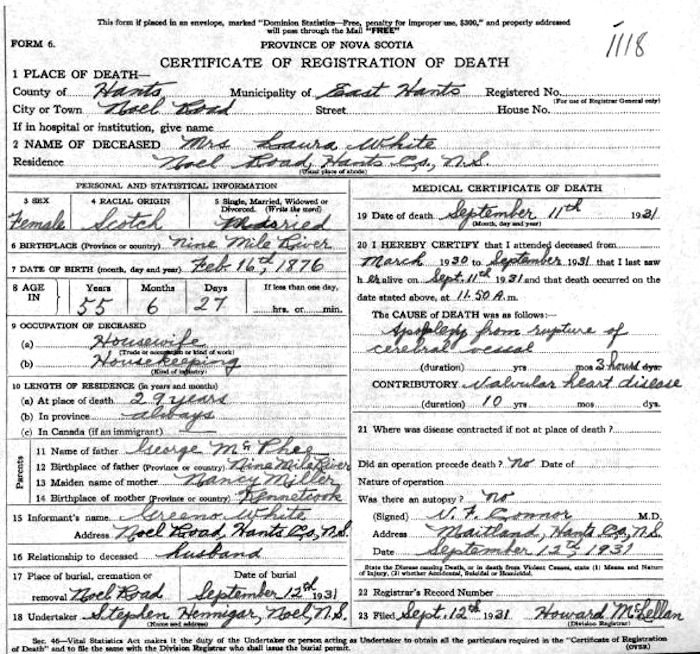 This form if placed in an envelope, marked "Dominion Statistics—Free, penalty for improper use, $300," and properly addressed
will pass through the Mail "FREE"
FORM 6.
PROVINCE OF NOVA SCOTIA
1118
CERTIFICATE OF REGISTRATION OF DEATH
1 PLACE OF DEATH—
County of Hants Municipality of East Hants Registered No.
(For use of Registrar General only)
City or Town Noel Road Street House No.
If in hospital or institution, give name
2 NAME OF DECEASED Mrs Laura White
Residence Noel Road, Hants Co, N.S.
(Usual place of abode)
PERSONAL AND STATISTICAL INFORMATION
3 SEX 4 RACIAL ORIGIN 5 Single, Married, Widowed or
Divorced. (Write the word)
Female Scotch Married
6 BIRTHPLACE (Province or country) Nine Mile River
7 DATE OF BIRTH (month, day and year) Feb 16th, 1876
8 AGE IN Years Months Days If less than one day,
55 6 27 hrs. or min.
9 OCCUPATION OF DECEASED
(a) Housewife
(Trade or occupation or kind of work)
(b) Housekeeping
(Kind of industry)
10 LENGTH OF RESIDENCE (in years and months)
(a) At place of death 29 years
(b) In province always
(c) In Canada (if an immigrant) —
Parents
11 Name of father George McPhee
12 Birthplace of father (Province or country) Nine Mile River
13 Maiden name of mother Nancy Miller
14 Birthplace of mother (Province or country) Kennetcook
15 Informant's name Greeno White
Address Noel Road, Hants Co, N.S.
16 Relationship to deceased husband
17 Place of burial, cremation or Date of burial
removal Noel Road September 12th 1931
18 Undertaker Stephen Hennigar, Noel, N.S.
(Name and address)
MEDICAL CERTIFICATE OF DEATH
19 Date of death September 11th 1931
(Month, day and year)
20 I HEREBY CERTIFY that I attended deceased from
March 1930 to September 1931 that I last saw
her alive on Sept. 11th 1931 and that death occurred on the
date stated above, at 11.50 A.m.
The CAUSE of DEATH was as follows:—
Apoplexy from rupture of
cerebral vessal
(duration) yrs mos 3 hours dys.
CONTRIBUTORY Valvular heart disease
(duration) 10 yrs mos. dys.
21 Where was disease contracted if not at place of death?
Did an operation precede death? No Date of
Nature of operation
Was there an autopsy? No
(Signed) V. F. Connor M.D.
Address Maitland, Hants Co, N.S.
Date September 12th, 1931
State the Disease causing Death, or in death from Violent Causes, state (1) Means and Nature
of Injury, (2) whether Accidental, Suicidal or Homicidal.
22 Registrar's Record Number
23 Filed Sept. 12th 1931 Howard McLellan
(Division Registrar)
Sec. 46—Vital Statistics Act makes it the duty of the Undertaker or person acting as Undertaker to obtain all the particulars required in the "Certificate of Registration
of Death" and to file the same with the Division Registrar who shall issue the burial permit.
(OVER)